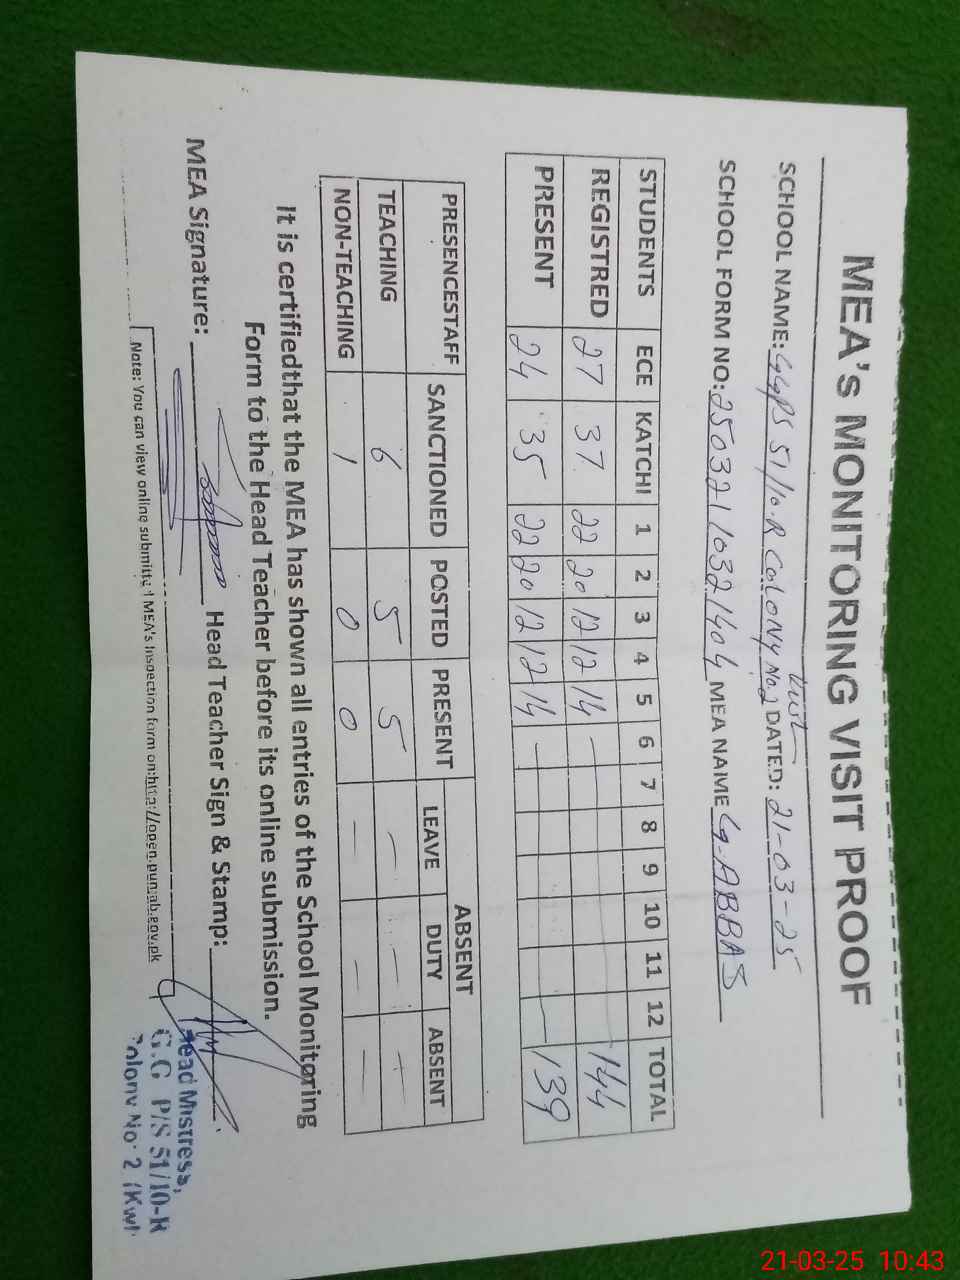 MEA's MONITORING VISIT PROOF
SCHOOL NAME: GGPS 51/10.R COLONY No.2 DATED: 21-03-25
SCHOOL FORM NO: 25032110321404 MEA NAME G.ABBAS
STUDENTS ECE KATCHI 1 2 3 4 5 6 7 8 9 10 11 12 TOTAL
REGISTRED 27 37 22 20 12 12 14 — 144
PRESENT 24 35 22 20 12 12 14 — — 139
PRESENCESTAFF SANCTIONED POSTED PRESENT ABSENT
LEAVE DUTY ABSENT
TEACHING 6 5 5 — — —
NON-TEACHING 1 0 0 — — —
It is certifiedthat the MEA has shown all entries of the School Monitoring
Form to the Head Teacher before its online submission.
MEA Signature: Head Teacher Sign & Stamp:
Head Mistress,
G.G P/S 51/10-R
Colony No: 2 (Kwl
Note: You can view online submitted MEA's Inspection form on:http://open.punjab.gov.pk
21-03-25 10:43